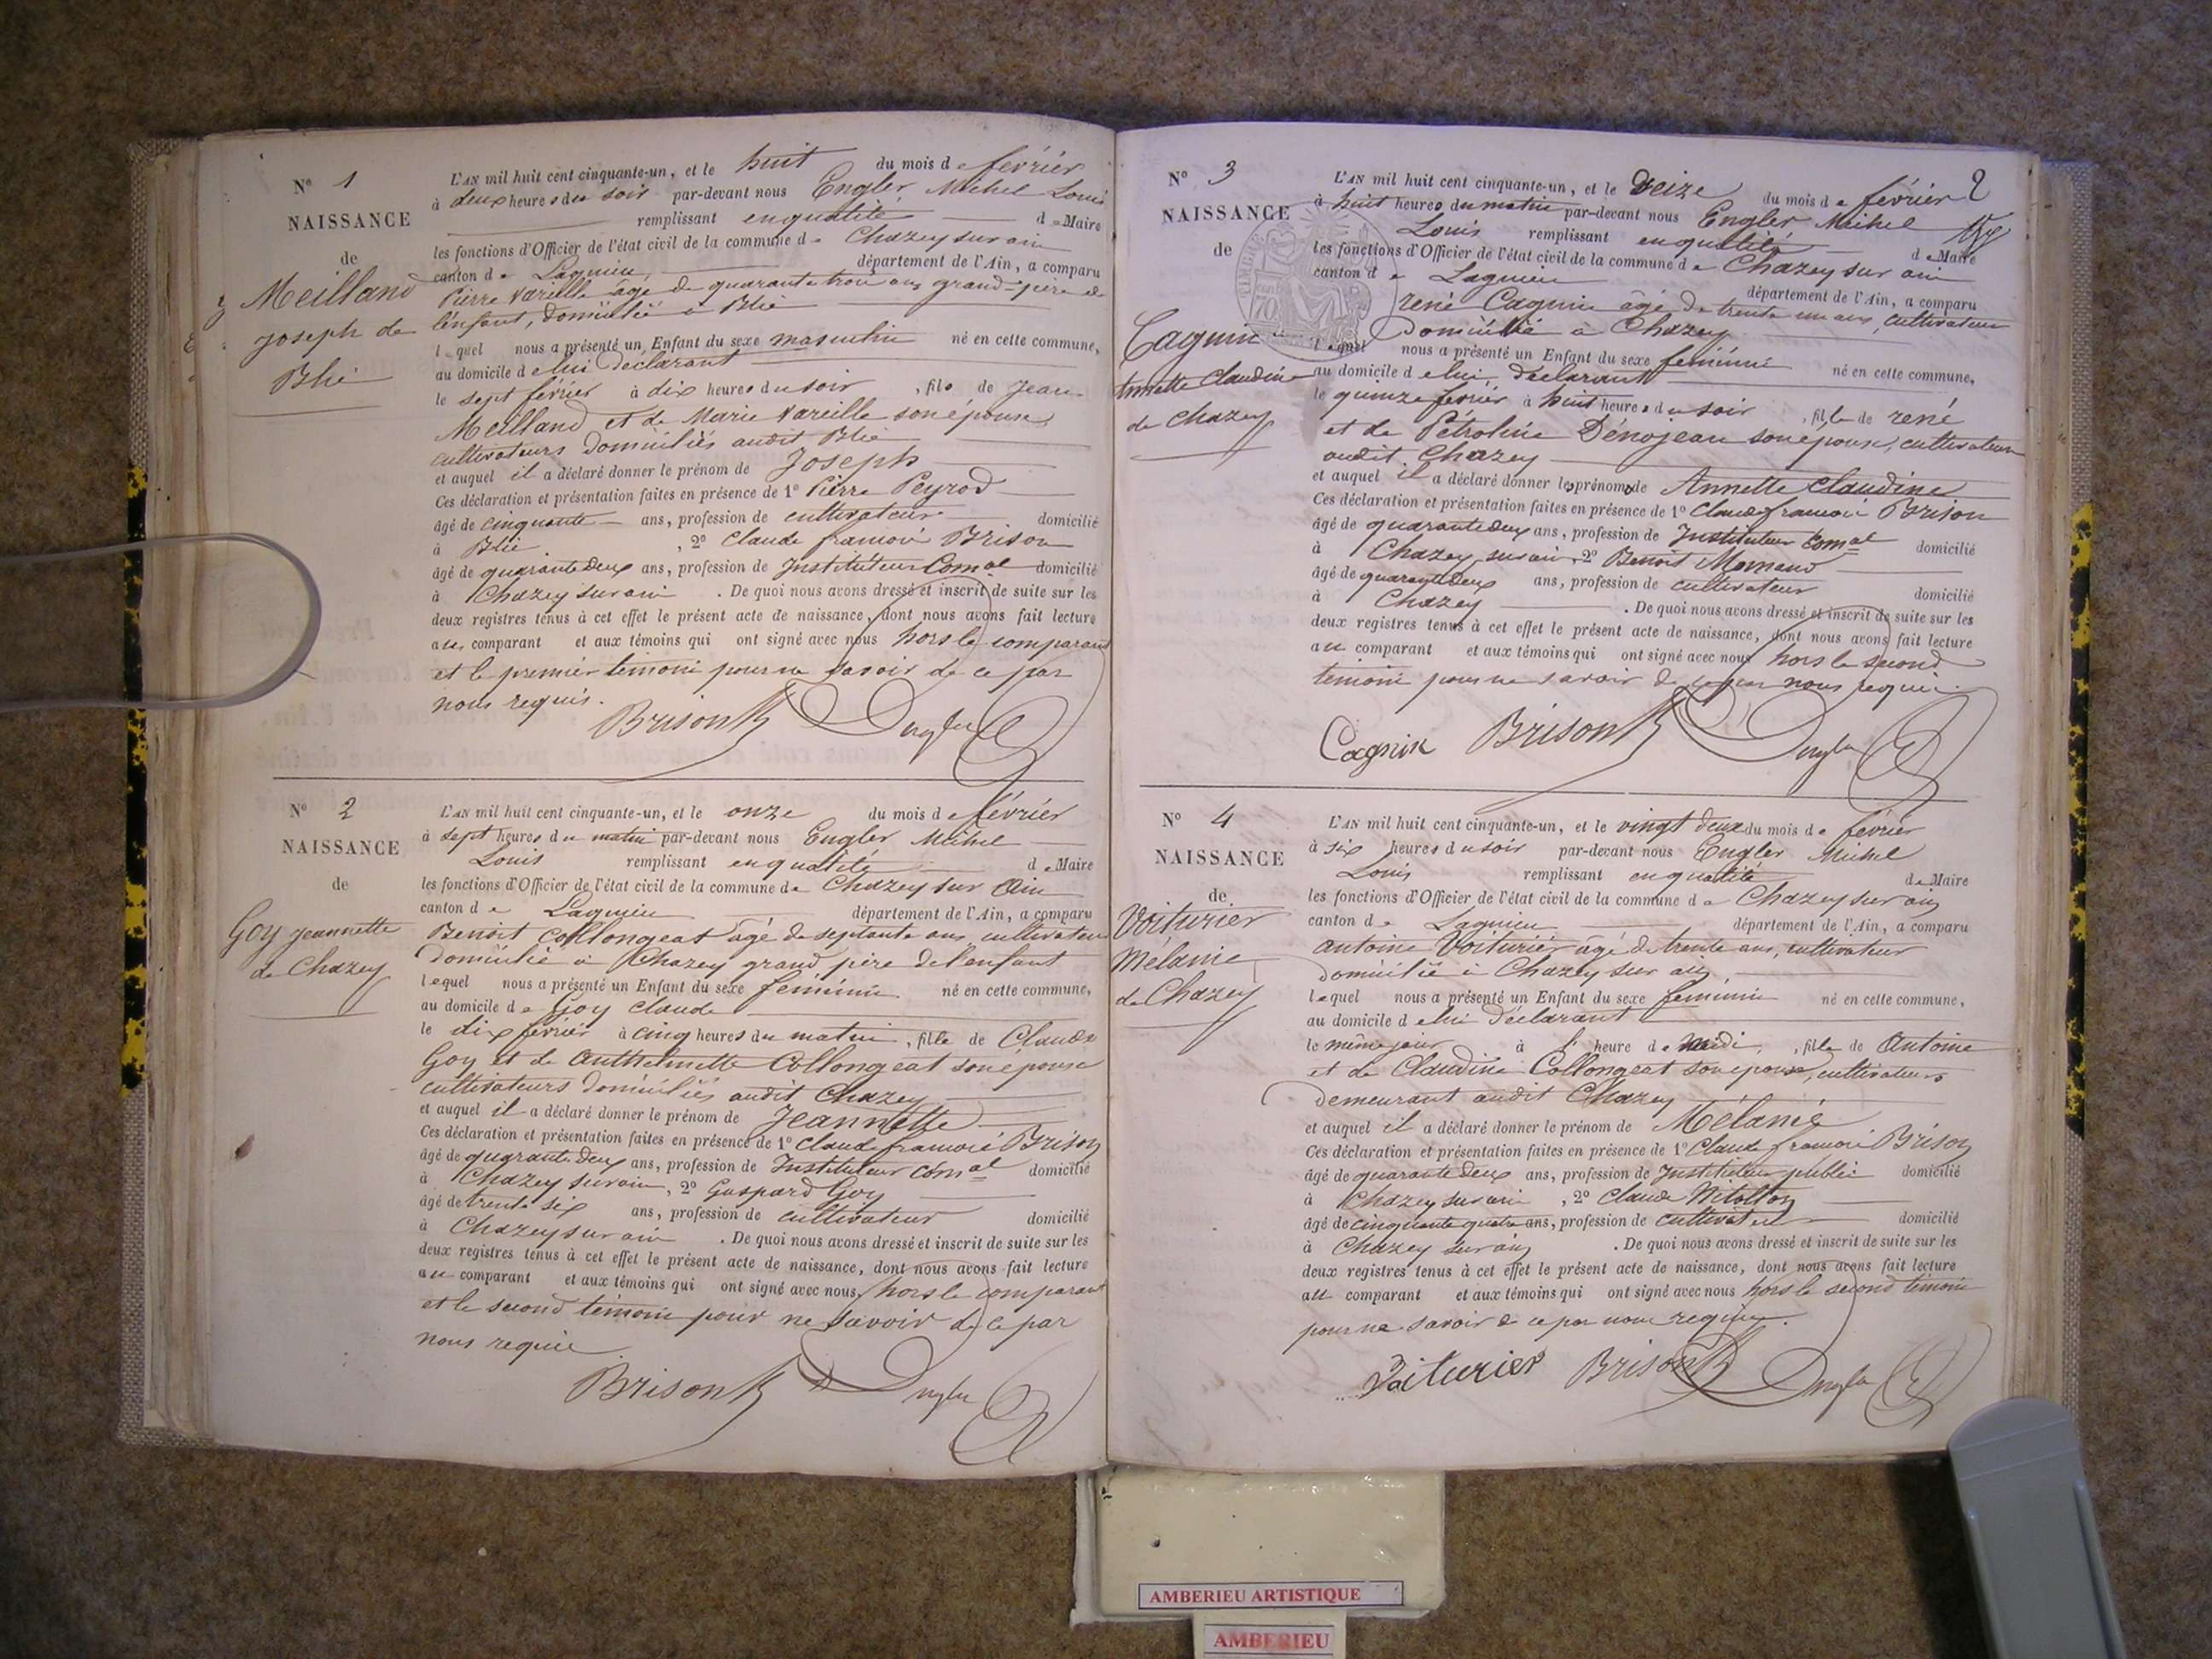 N° 1
NAISSANCE
de
Meilland
joseph de
Blié
L'AN mil huit cent cinquante-un, et le huit du mois de février
à deux heures du soir par-devant nous Engler Michel Louis
remplissant en qualité de Maire
les fonctions d'Officier de l'état civil de la commune de Chazey sur ain
canton de Lagnieu, département de l'Ain, a comparu
Pierre Vareille âgé de quarante trois ans grand-père de
l'enfant, domicilié à Blié
lequel nous a présenté un Enfant du sexe masculin né en cette commune,
au domicile de lui déclarant
le sept février à dix heures du soir, fils de Jean
Meilland et de Marie Vareille son épouse
cultivateurs domiciliés audit Blié
et auquel il a déclaré donner le prénom de Joseph
Ces déclaration et présentation faites en présence de 1° Pierre Peyrod
âgé de cinquante ans, profession de cultivateur domicilié
à Blié, 2° Claude françois Brison
âgé de quarante deux ans, profession de Instituteur Comal domicilié
à Chazey sur ain. De quoi nous avons dressé et inscrit de suite sur les
deux registres tenus à cet effet le présent acte de naissance, dont nous avons fait lecture
au comparant et aux témoins qui ont signé avec nous hors le comparant
et le premier témoin pour ne savoir de ce par
nous requis.
Brison Engler
N° 2
NAISSANCE
de
Goy jeannette
de Chazey
L'AN mil huit cent cinquante-un, et le onze du mois de février
à sept heures du matin par-devant nous Engler Michel
Louis remplissant en qualité de Maire
les fonctions d'Officier de l'état civil de la commune de Chazey sur Ain
canton de Lagnieu département de l'Ain, a comparu
Benoit Collongeat âgé de septante ans cultivateur
domicilié à Chazey grand père de l'enfant
lequel nous a présenté un Enfant du sexe féminin né en cette commune,
au domicile de Goy Claude
le dix février à cinq heures du matin, fille de Claude
Goy et de Anthelmette Collongeat son épouse
cultivateurs domiciliés audit Chazey
et auquel il a déclaré donner le prénom de Jeannette
Ces déclaration et présentation faites en présence de 1° Claude françois Brison
âgé de quarante deux ans, profession de Instituteur comal domicilié
à Chazey sur ain, 2° Gaspard Goy
âgé de trente six ans, profession de cultivateur domicilié
à Chazey sur ain. De quoi nous avons dressé et inscrit de suite sur les
deux registres tenus à cet effet le présent acte de naissance, dont nous avons fait lecture
au comparant et aux témoins qui ont signé avec nous, hors le comparant
et le second témoin pour ne savoir de ce par
nous requis
Brison Engler
2
N° 3
NAISSANCE
de
Cagnin
Annette Claudine
de Chazey
L'AN mil huit cent cinquante-un, et le seize du mois de février
à huit heures du matin par-devant nous Engler Michel
Louis remplissant en qualité de Maire
les fonctions d'Officier de l'état civil de la commune de Chazey sur ain
canton de Lagnieu département de l'Ain, a comparu
rené Cagnin âgé de trente un ans, cultivateur
domicilié à Chazey
lequel nous a présenté un Enfant du sexe féminin né en cette commune,
au domicile de lui, déclarant
le quinze février à huit heures du soir, fille de rené
et de Pétroline Dénojean son épouse, cultivateurs
audit Chazey
et auquel il a déclaré donner les prénoms de Annette Claudine
Ces déclaration et présentation faites en présence de 1° Claude françois Brison
âgé de quarante deux ans, profession de Instituteur Comal domicilié
à Chazey sur ain, 2° Benoit Mornand
âgé de quarante deux ans, profession de cultivateur domicilié
à Chazey. De quoi nous avons dressé et inscrit de suite sur les
deux registres tenus à cet effet le présent acte de naissance, dont nous avons fait lecture
au comparant et aux témoins qui ont signé avec nous hors le second
témoin pour ne savoir de ce par nous requis.
Cagnin Brison Engler
N° 4
NAISSANCE
de
Voiturier
Mélanie
de Chazey
L'AN mil huit cent cinquante-un, et le vingt deux du mois de février
à six heures du soir par-devant nous Engler Michel
Louis remplissant en qualité de Maire
les fonctions d'Officier de l'état civil de la commune de Chazey sur ain
canton de Lagnieu département de l'Ain, a comparu
antoine Voiturier âgé de trente ans, cultivateur
domicilié à Chazey sur ain
lequel nous a présenté un Enfant du sexe féminin né en cette commune,
au domicile de lui déclarant
le même jour à l' heure de midi, fille de Antoine
et de Claudine Collongeat son épouse, cultivateurs
demeurant audit Chazey
et auquel il a déclaré donner le prénom de Mélanie
Ces déclaration et présentation faites en présence de 1° Claude françois Brison
âgé de quarante deux ans, profession de Instituteur public domicilié
à Chazey sur ain, 2° Claude
âgé de cinquante quatre ans, profession de cultivateur domicilié
à Chazey sur ain. De quoi nous avons dressé et inscrit de suite sur les
deux registres tenus à cet effet le présent acte de naissance, dont nous avons fait lecture
au comparant et aux témoins qui ont signé avec nous hors le second témoin
pour ne savoir de ce par nous requis.
Voiturier Brison Engler
AMBERIEU ARTISTIQUE
AMBERIEU